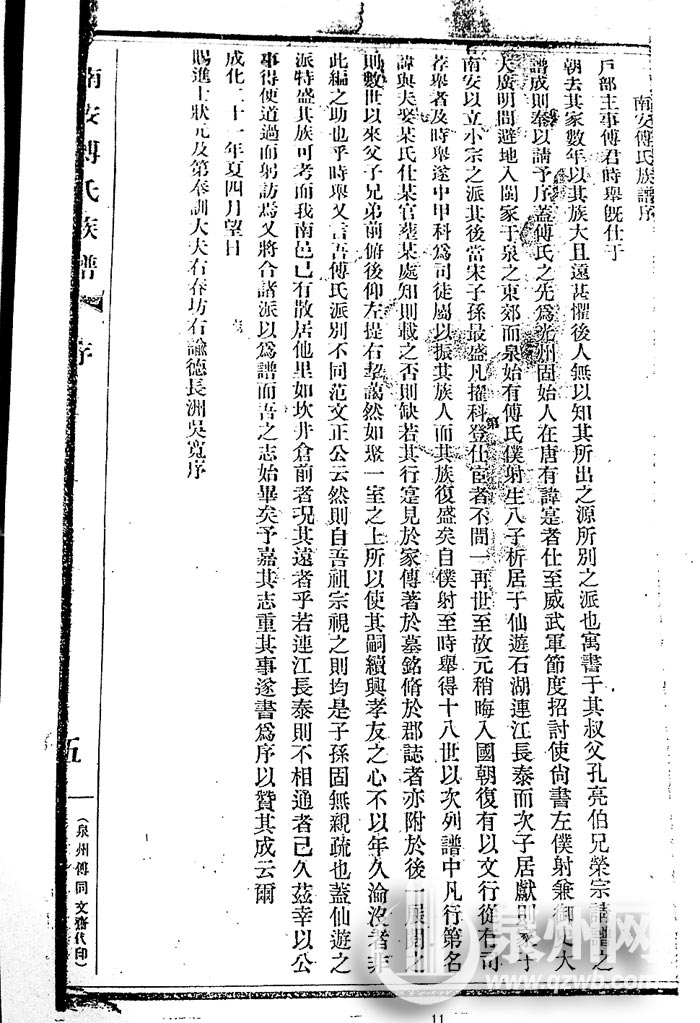 南安傅氏族譜序
戶部主事傅君時舉旣仕于
朝去其家數年以其族大且遠甚懼後人無以知其所出之源所別之派也寓書于其叔父孔亮伯兄榮宗請譜之
譜成則奉以請予序蓋傅氏之先爲光州固始人在唐有諱寔者仕至威武軍節度招討使尙書左僕射兼御史大
夫廣明間避地入閩家于泉之東郊而泉始有傅氏僕射生八子析居于仙遊石湖連江長泰而次子居獻則家于
南安以立小宗之派其後當宋子孫最盛凡擢科第登仕宦者不間一再世至故元稍晦入國朝復有以文行從有司
荐舉者及時舉遂中甲科爲司徒屬以振其族人而其族復盛矣自僕射至時舉得十八世以次列譜中凡行第名
諱與夫娶某氏仕某官塟某處知則載之否則缺若其行寔見於家傳著於墓銘脩於郡誌者亦附於後一展閱之
則數世以來父子兄弟前俯後仰左提右挈藹然如聚一室之上所以使其嗣續興孝友之心不以年久淪沒者非
此編之助也乎時舉又言吾傅氏派別不同范文正公云然則自吾祖宗視之則均是子孫固無親疏也蓋仙遊之
派特盛其族可考而我南邑已有散居他里如坎井倉前者況其遠者乎若連江長泰則不相通者已久茲幸以公
事得使道過而躬訪焉又將合諸派以爲譜而吾之志始畢矣予嘉其志重其事遂書爲序以贊其成云爾
成化二十一年夏四月望日
賜進士狀元及第奉訓大夫右春坊右諭德長洲吳寬序
南安傅氏族譜
序
五
（泉州傅同文齋代印）
11
泉州网
www.qzwb.com